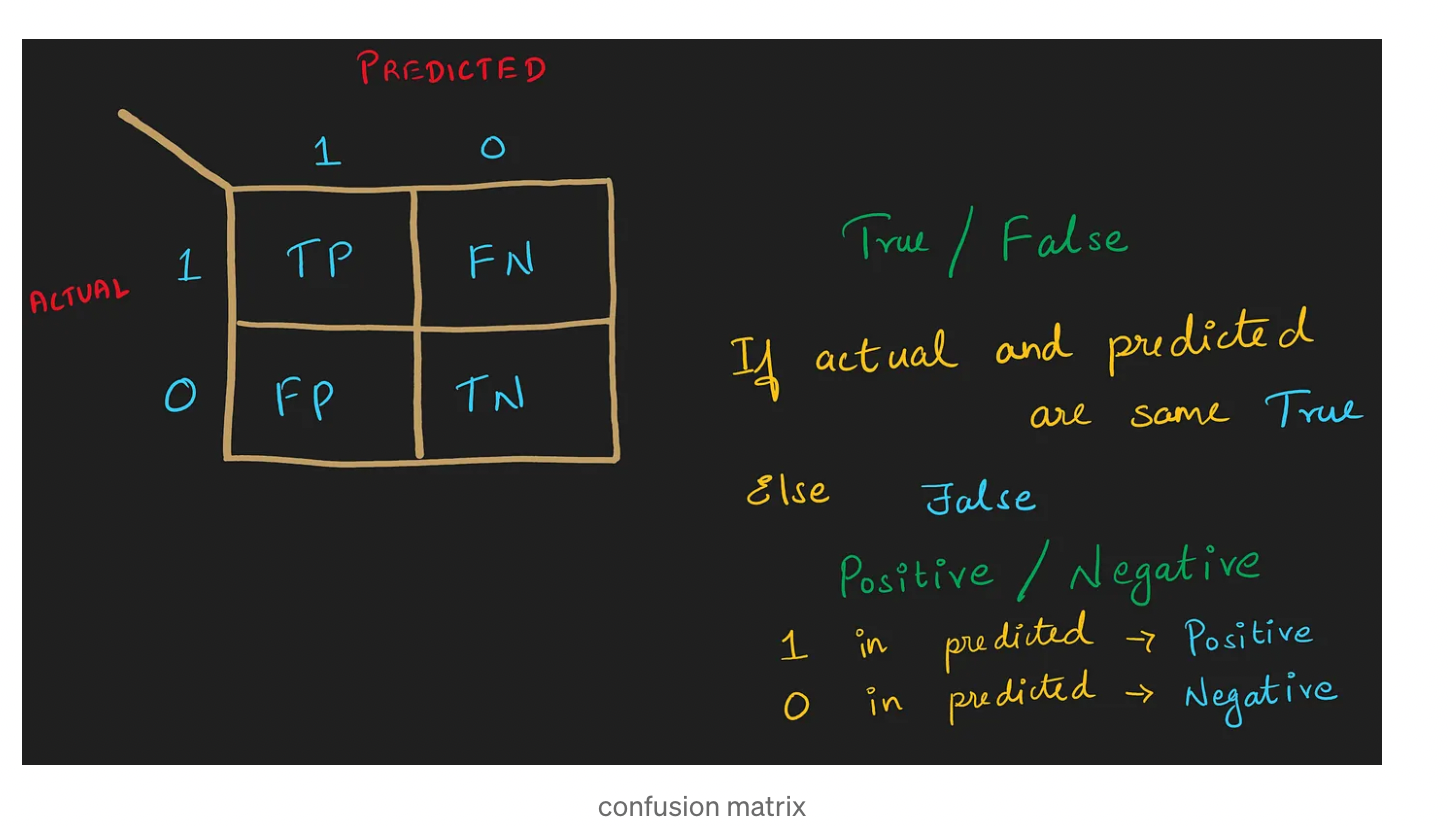 PREDICTED
1 0
1 TP FN
ACTUAL
0 FP TN
True / False
If actual and predicted
are same True
Else False
Positive / Negative
1 in predicted → Positive
0 in predicted → Negative
confusion matrix